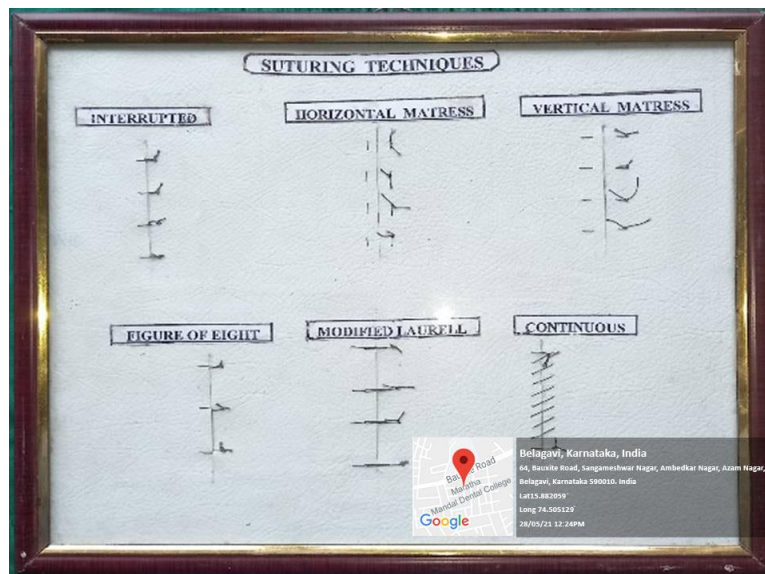 SUTURING TECHNIQUES
INTERRUPTED
HORIZONTAL MATRESS
VERTICAL MATRESS
FIGURE OF EIGHT
MODIFIED LAURELL
CONTINUOUS
Bauxite Road
Maratha
Mandal Dental College
Google
Belagavi, Karnataka, India
64, Bauxite Road, Sangameshwar Nagar, Ambedkar Nagar, Azam Nagar,
Belagavi, Karnataka 590010. India
Lat15.882059°
Long 74.505129°
28/05/21 12:24PM